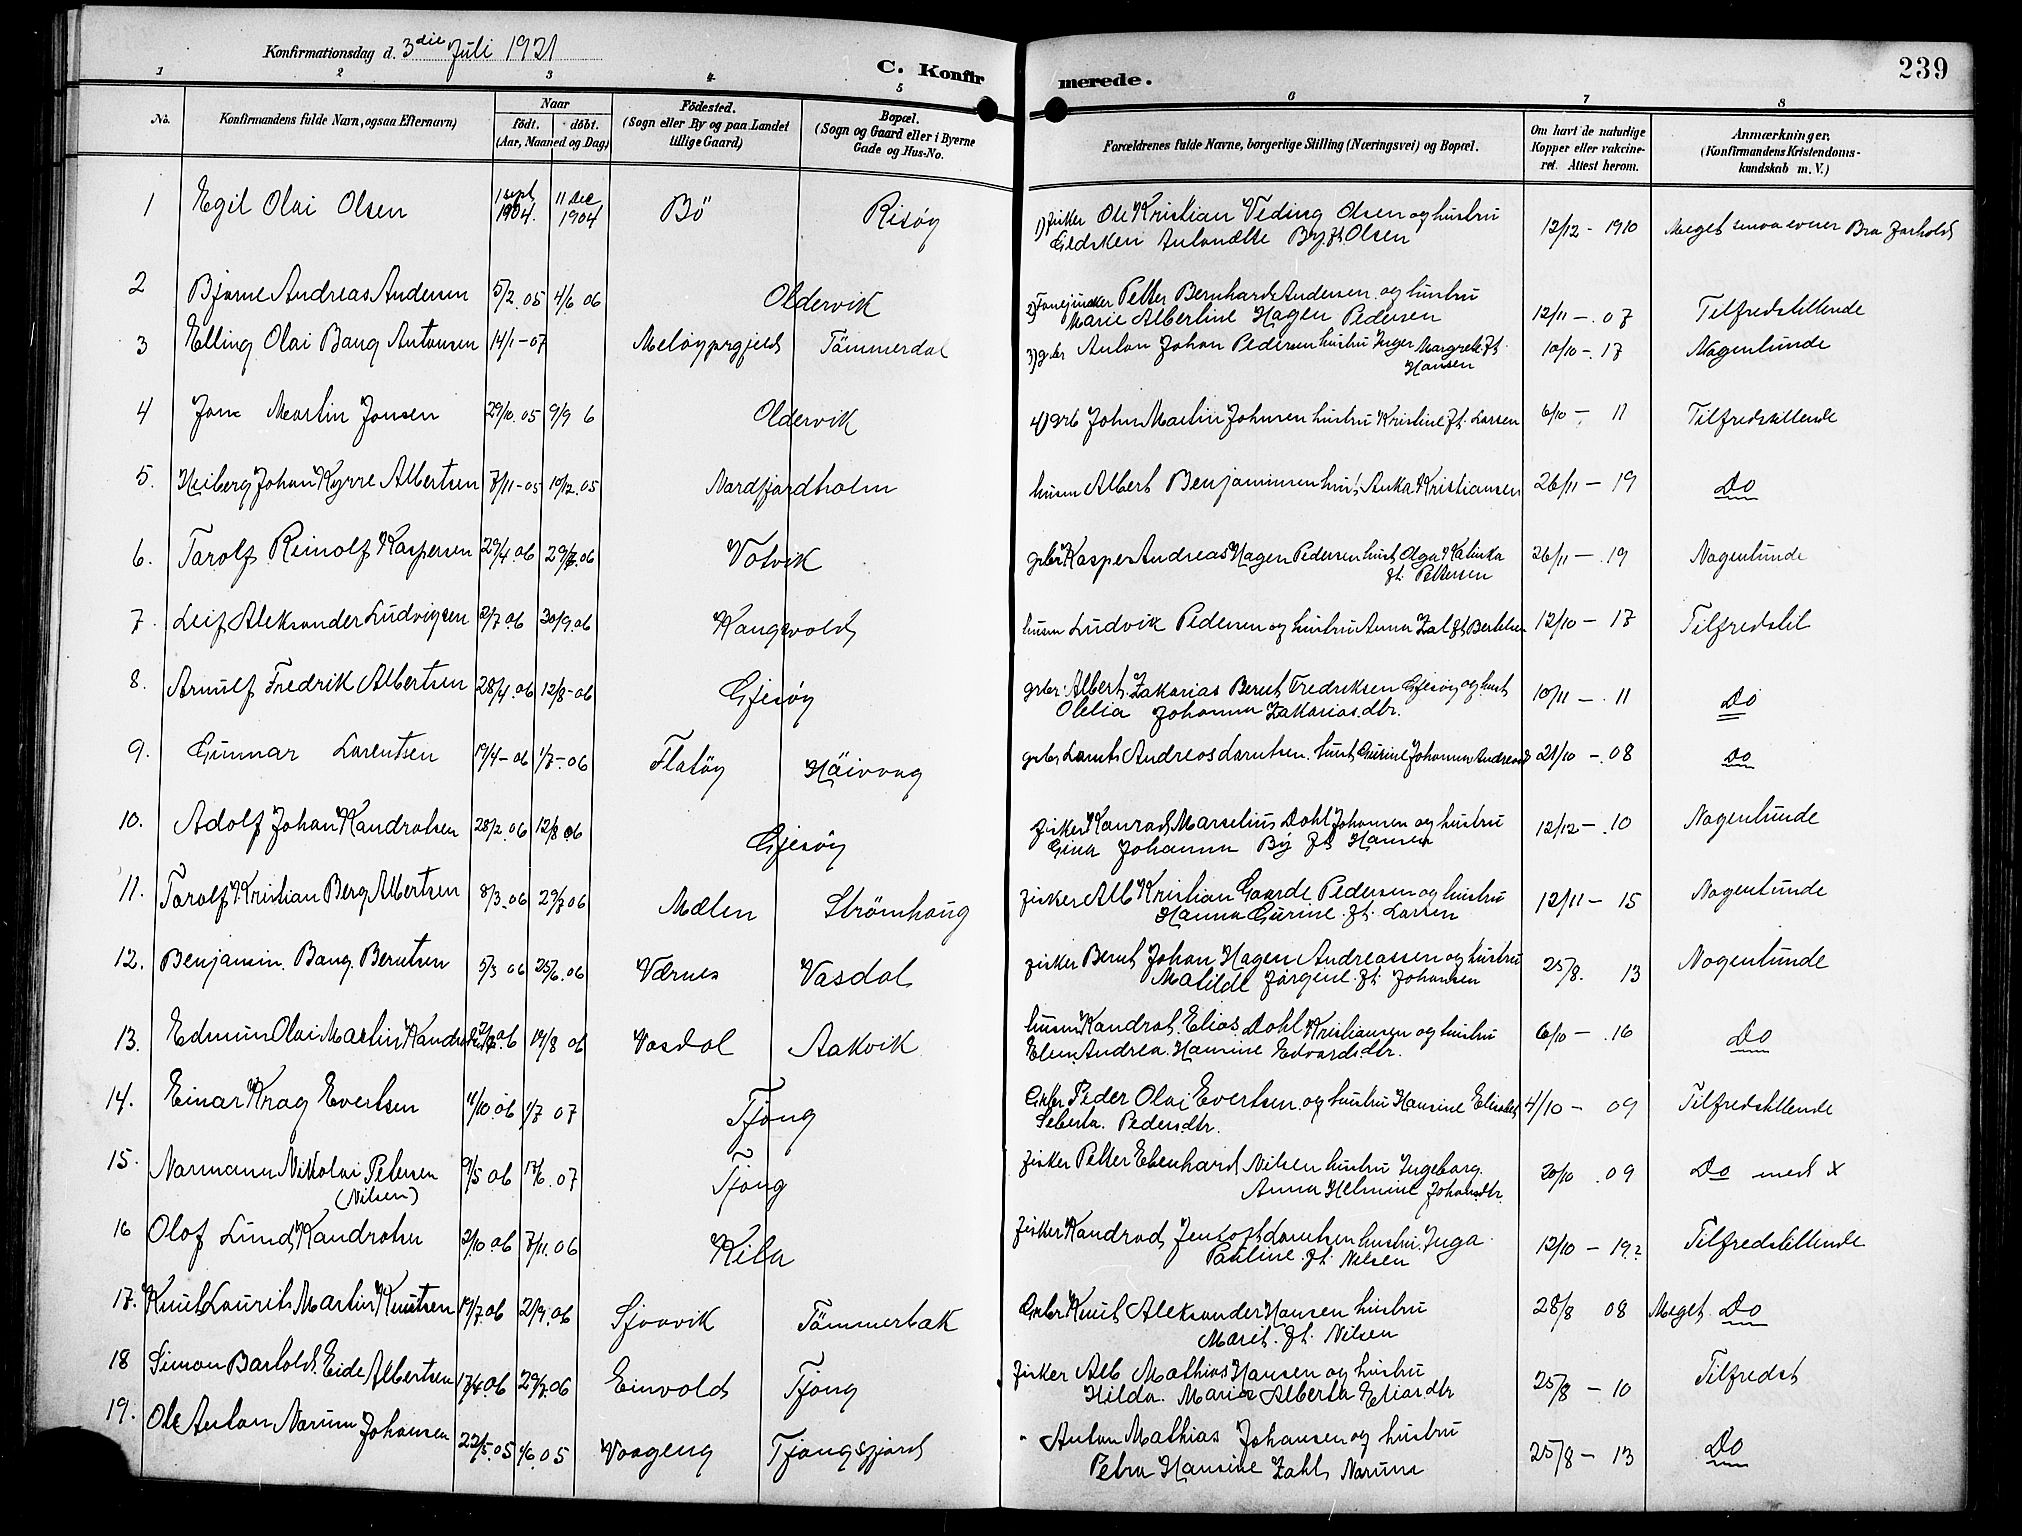 Konfirmationsdag d. 3die Juli 1921
C. Konfirmerede.
239
1 2 3 4 5 6 7 8
No.
Konfirmandens fulde Navn, ogsaa Efternavn)
Naar
født. døbt.
(Aar, Maaned og Dag)
Födested.
(Sogn eller By og paa Landet
tillige Gaard)
Bopæl.
(Sogn og Gaard eller i Byerne
Gade og Hus-No.
Forældrenes fulde Navne, borgerlige Stilling (Næringsvei) og Bopæl.
Om havt de naturlige
Kopper eller vakcine-
ret. Attest herom.
Anmærkninger.
(Konfirmandens Kristendoms-
kundskab m. V.)
1 Egil Olai Olsen 1 sept 1904. 11 dec 1904 Bö Risöy 1) fisker Ole Kristian Veding Olsen og hustru
Antonette By ft Olsen 12/12 - 1910 Meget smaa evner Bra forhold
2 Bjarne Andreas Andersen 5/2 05 4/6 06 Oldervik 2) Petter Bernhard Andersen og hustru
Marie Albertine Hagen Pedersen 12/11 - 07 Tilfredstillende
3 Elling Olai Bang Antonsen 14/1 - 07 Melöyprgjeld Tömmerdal 3) gbr Anton Johan Pedersen hustru Inger Margrete ft.
Hansen 10/10 - 17 Nogenlunde
4 Jonn Martin Jonsen 29/10. 05 9/9 6 Oldervik 4) grb John Martin Johnsen hustru Kristine ft. Larsen 6/10 - 11 Tilfredstillende
5. Heiberg Johan Kyrre Albertsen 7/11 - 05 10/12. 05 Nordfjordholm husm Albert Benjaminsen hust. Anka Kristiansen 26/11 - 19 Do
6. Torolf Reinolf Kaspersen 29/4. 06 29/7. 06 Votvik grbr Kasper Andreas Hagen Pedersen hust Olga Kalinka
ft. Pettersen 26/11 - 19 Nogenlunde
7. Leif Aleksander Ludvigsen 2/7. 06 30/9. 06 Kangsvold husm Ludvik Pedersen og hustru Anna Zal ft Bertelsen 12/10 - 17 Tilfredstil
8. Arnulf Fredrik Albertsen 28/4. 06 12/8 - 06 Gjesöy grbr. Albert Zakarias Bernt Fredriksen Gjesöy og hust
Olelia Johanna Zakariasdtr. 10/11 - 11 Do
9. Gunnar Lorentsen 19/4 - 06 1/7 - 06 Flatöy Häivvag grbr Lornts Andreas Lorntsen hust Gurine Johanna Andreasd 21/10 - 08 Do
10. Adolf Johan Kandrotsen 28/2. 06 12/8 06 Gjesöy fisker Konrad Marselius Dohl Johansen og hustru
Gina Johanna By ft Hansen 12/12 - 10 Nogenlunde
11. Torolf Kristian Berg Albertsen 8/3. 06 06 Mælen Strömhaug fisker Alb Kristian Gaarde Pedersen og hustru
Hanna Gurine ft. Larsen 12/11 - 15 Nogenlunde
12. Benjamin Bang Berntsen 5/3 06 25/6. 06 Værnes Vasdal fisker Bernt Johan Hagen Andreassen og hustru
Matilde Jörgine ft. Johansen 25/8. 13 Nogenlunde
13. Edmun Olai Martin 06 19/8 06 Vasdal Aakvik husm Kandrot Elias Dohl Kristiansen og hustru
Elen Andrea Hansine Edvardsdtr. 6/10 - 16 Do
14. Einar Krag Evertsen 11/10. 06 1/7 07 Tjong Grbr Peder Olai Evertsen og hustru Hansine Elisabet
Seberta Pedersdtr. 4/10 - 09 Tilfredstillende
15. Normann Nikolai Petersen
(Nilsen) 9/5 06 07 Tjong fisker Petter Ebenhard Nilsen hustru Ingeborg
Anna Helmine Johansdtr. 20/10 09 Do med x
16 Olaf Lund Kandrotsen 2/10. 06 7/11. 06 Kila fisker Kandrad Jentoft Lorntsen hustru Inga
Pauline ft. Nilsen 12/10 - 19? Tilfredstillende
17. Knut Laurits Martin Knutsen 19/7. 06 2/9. 06 Sjonvik Tömmerbak Grbr Knut Aleksander Hansen hustru
Marit ft. Nilsen 28/8 08 Meget Do
18 Simon Bartold Eide Albertsen 17/4. 06 29/7. 06 Einvold Tjong fisker Alb Mathias Hansen og hustru
Hilda Maria Alberta Eliasdtr 25/8 - 10 Tilfredst
19. Ole Anton Narum Johansen 22/5. 05 05 Vaageng Tjongsfjord " Anton Mathias Johansen og hustru
Petra Hansine Zahl Narum 25/8 - 13 Do